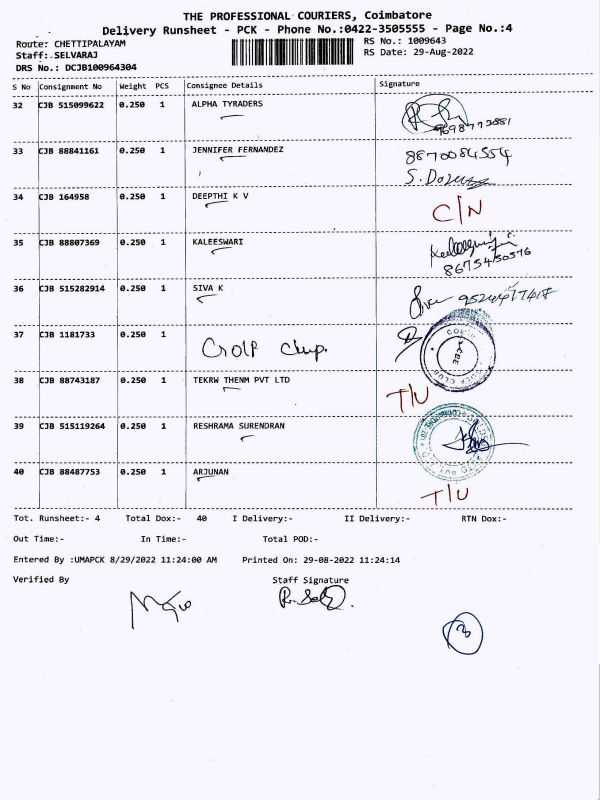 THE PROFESSIONAL COURIERS, Coimbatore
Delivery Runsheet - PCK - Phone No.:0422-3505555 - Page No.:4
Route: CHETTIPALAYAM RS No.: 1009643
Staff: SELVARAJ RS Date: 29-Aug-2022
DRS No.: DCJB100964304
S No Consignment No Weight PCS Consignee Details Signature
32 CJB 515099622 0.250 1 ALPHA TYRADERS
33 CJB 88841161 0.250 1 JENNIFER FERNANDEZ 8870084554
34 CJB 164958 0.250 1 DEEPTHI K V C/N
35 CJB 88807369 0.250 1 KALEESWARI
8675450576
36 CJB 515282914 0.250 1 SIVA K
37 CJB 1181733 0.250 1
38 CJB 88743187 0.250 1 TEKRW THENM PVT LTD T/U
39 CJB 515119264 0.250 1 RESHRAMA SURENDRAN
40 CJB 88487753 0.250 1 ARJUNAN
T/U
Tot. Runsheet:- 4 Total Dox:- 40 I Delivery:- II Delivery:- RTN Dox:-
Out Time:- In Time:- Total POD:-
Entered By :UMAPCK 8/29/2022 11:24:00 AM Printed On: 29-08-2022 11:24:14
Verified By Staff Signature